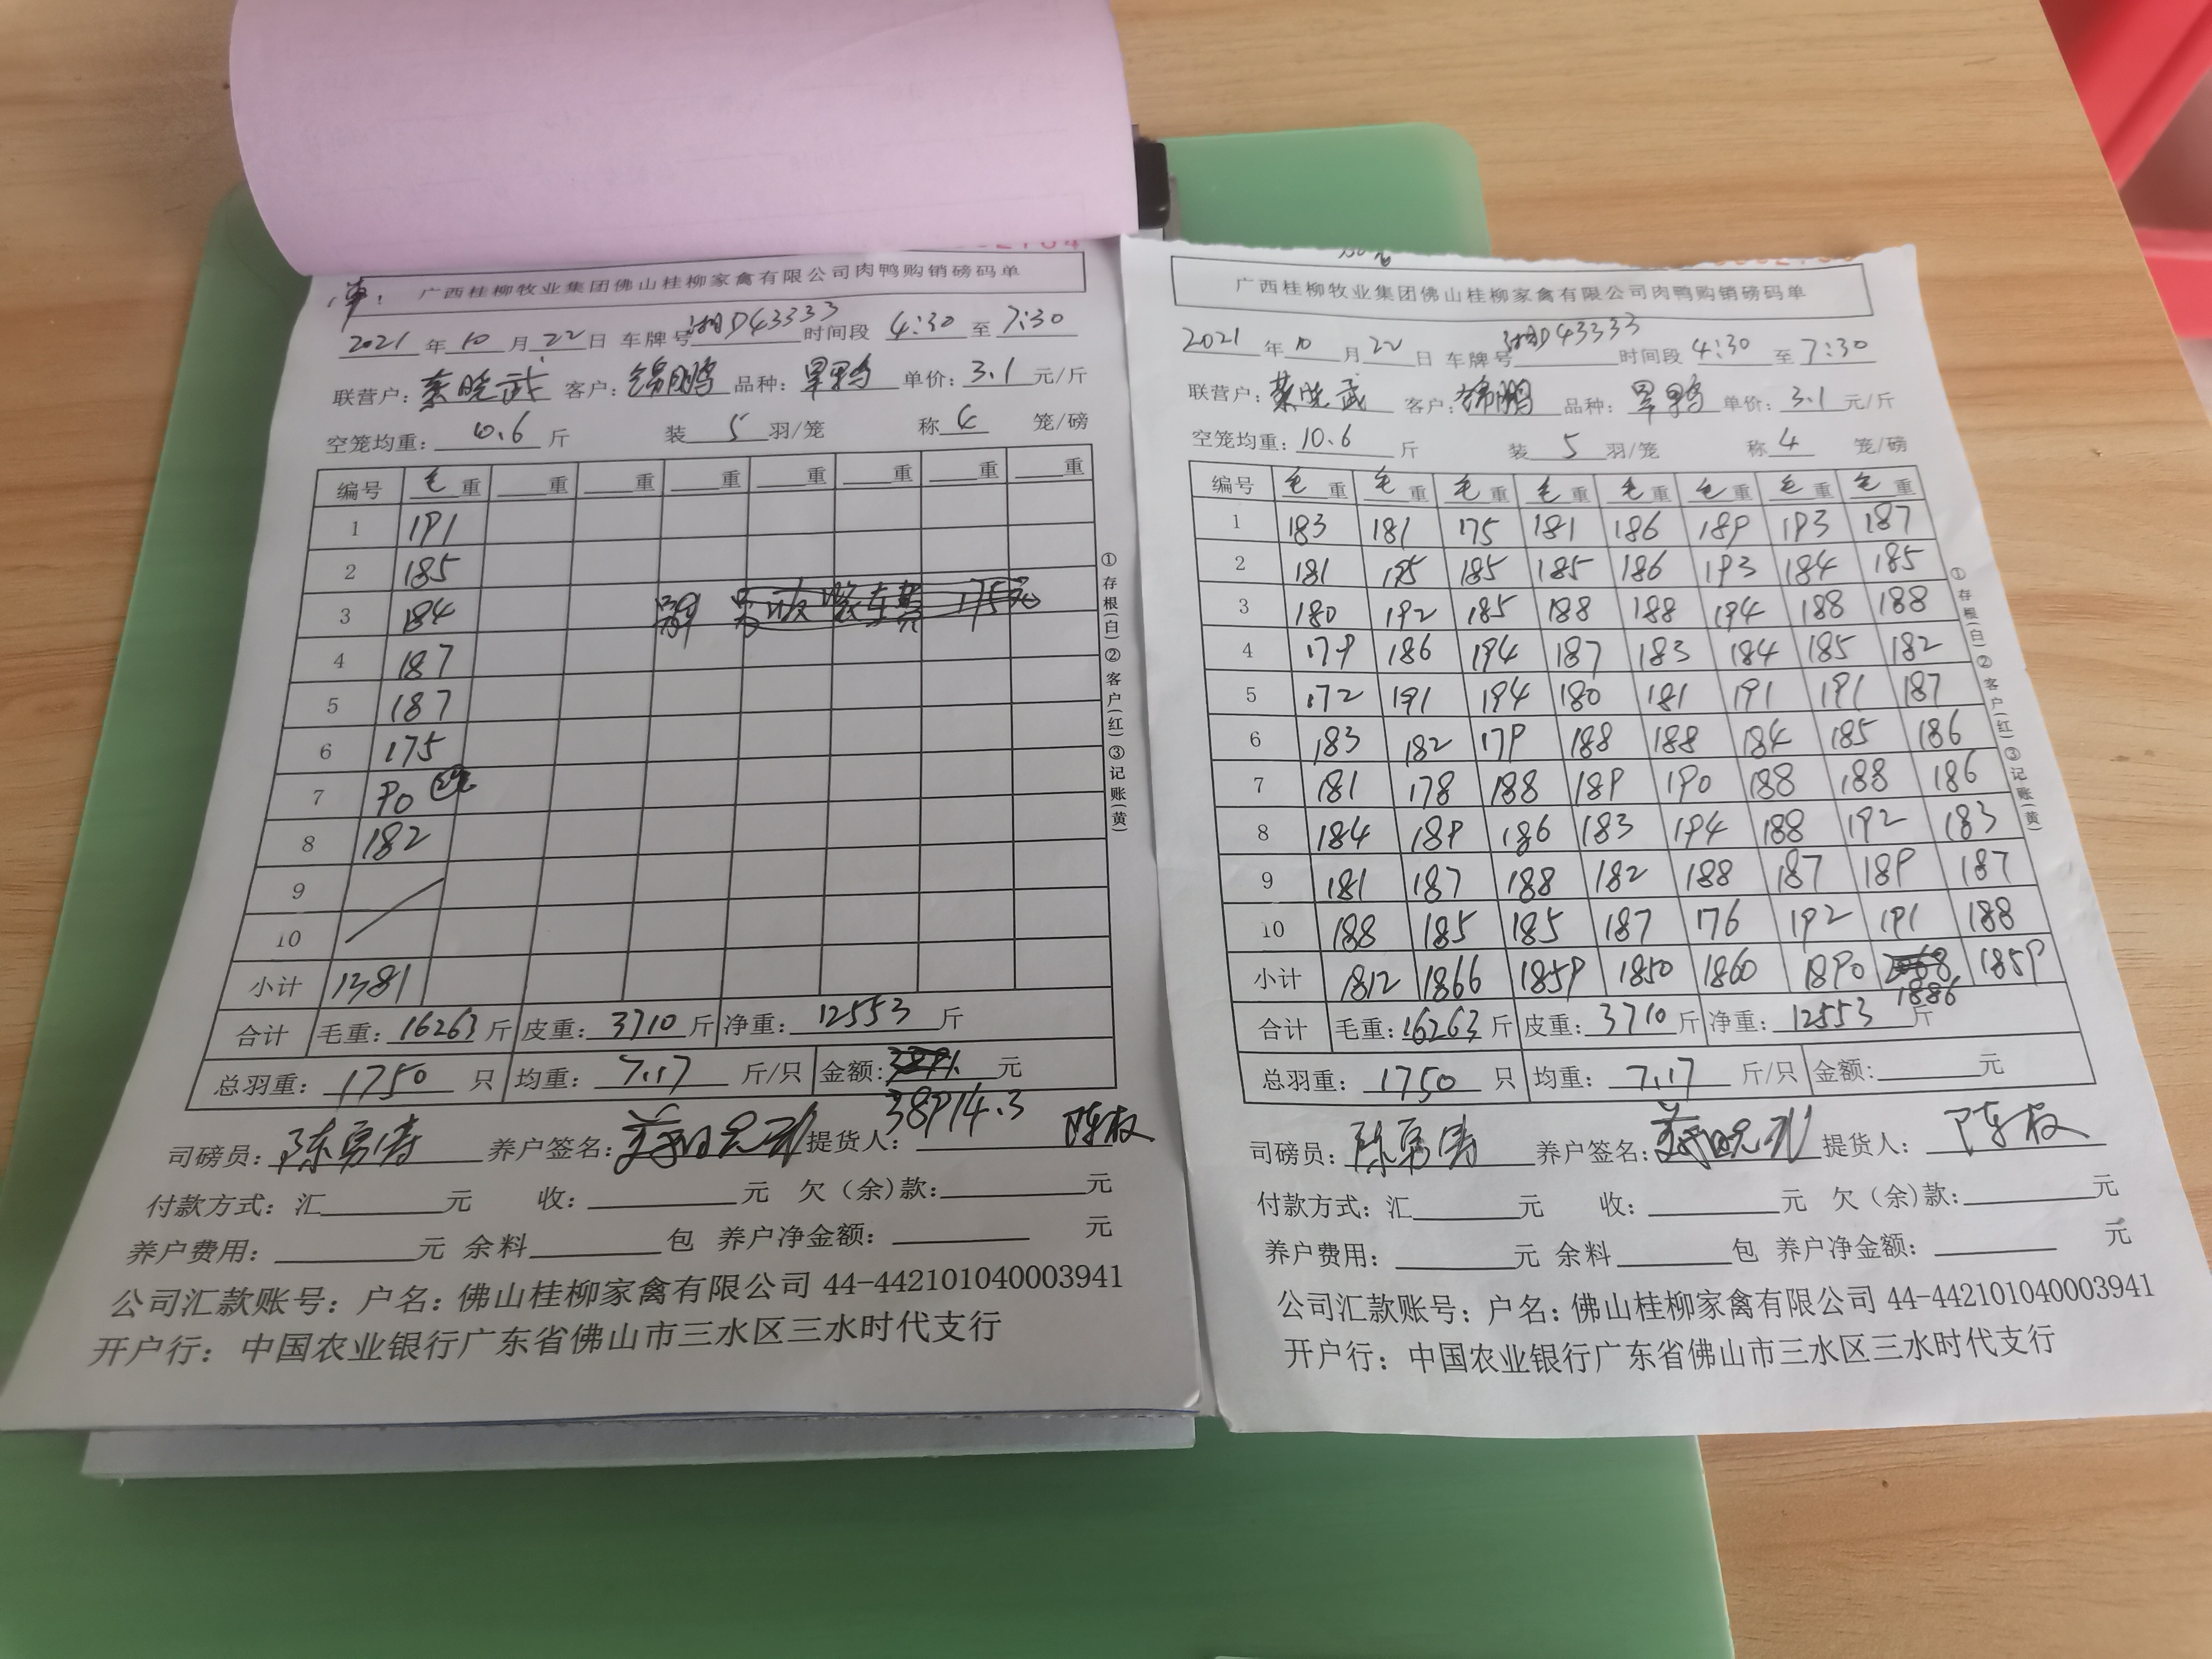 广西桂柳牧业集团佛山桂柳家禽有限公司肉鸭购销磅码单
2021 年 10 月 22 日 车牌号 湘D43333 时间段 4:30 至 7:30
联营户: 晓武 客户: 锦鹏 品种: 单价: 3.1 元/斤
空笼均重: 10.6 斤 装 5 羽/笼 称 4 笼/磅
编号 毛重 重 重 重 重 重 重 重
1 191
2 185
3 184 装车费 175元
4 187
5 187
6 175
7 90
8 182
9
10
小计 1381
合计 毛重: 16263 斤 皮重: 3710 斤 净重: 12553 斤
总羽重: 1750 只 均重: 7.17 斤/只 金额: 元
38914.3
司磅员: 陈 养户签名: 提货人: 陈
付款方式: 汇 元 收: 元 欠(余)款: 元
养户费用: 元 余料 包 养户净金额: 元
公司汇款账号: 户名: 佛山桂柳家禽有限公司 44-442101040003941
开户行: 中国农业银行广东省佛山市三水区三水时代支行
①存根(白)②客户(红)③记账(黄)
广西桂柳牧业集团佛山桂柳家禽有限公司肉鸭购销磅码单
2021 年 10 月 22 日 车牌号 湘D43333 时间段 4:30 至 7:30
联营户: 晓武 客户: 锦鹏 品种: 单价: 3.1 元/斤
空笼均重: 10.6 斤 装 5 羽/笼 称 4 笼/磅
编号 毛重 毛重 毛重 毛重 毛重 毛重 毛重 毛重
1 183 181 175 181 186 189 193 187
2 181 195 185 185 186 193 184 185
3 180 192 185 188 188 194 188 188
4 179 186 194 187 183 184 185 182
5 172 191 194 180 181 191 191 187
6 183 182 179 188 188 184 185 186
7 181 178 188 189 190 188 188 186
8 184 189 186 183 194 188 192 183
9 181 187 188 182 188 187 189 187
10 188 185 185 187 176 192 191 188
小计 1812 1866 1859 1850 1860 1890 1886 1859
合计 毛重: 16263 斤 皮重: 3710 斤 净重: 12553 斤
总羽重: 1750 只 均重: 7.17 斤/只 金额: 元
司磅员: 陈 养户签名: 提货人: 陈
付款方式: 汇 元 收: 元 欠(余)款: 元
养户费用: 元 余料 包 养户净金额: 元
公司汇款账号: 户名: 佛山桂柳家禽有限公司 44-442101040003941
开户行: 中国农业银行广东省佛山市三水区三水时代支行
①存根(白)②客户(红)③记账(黄)